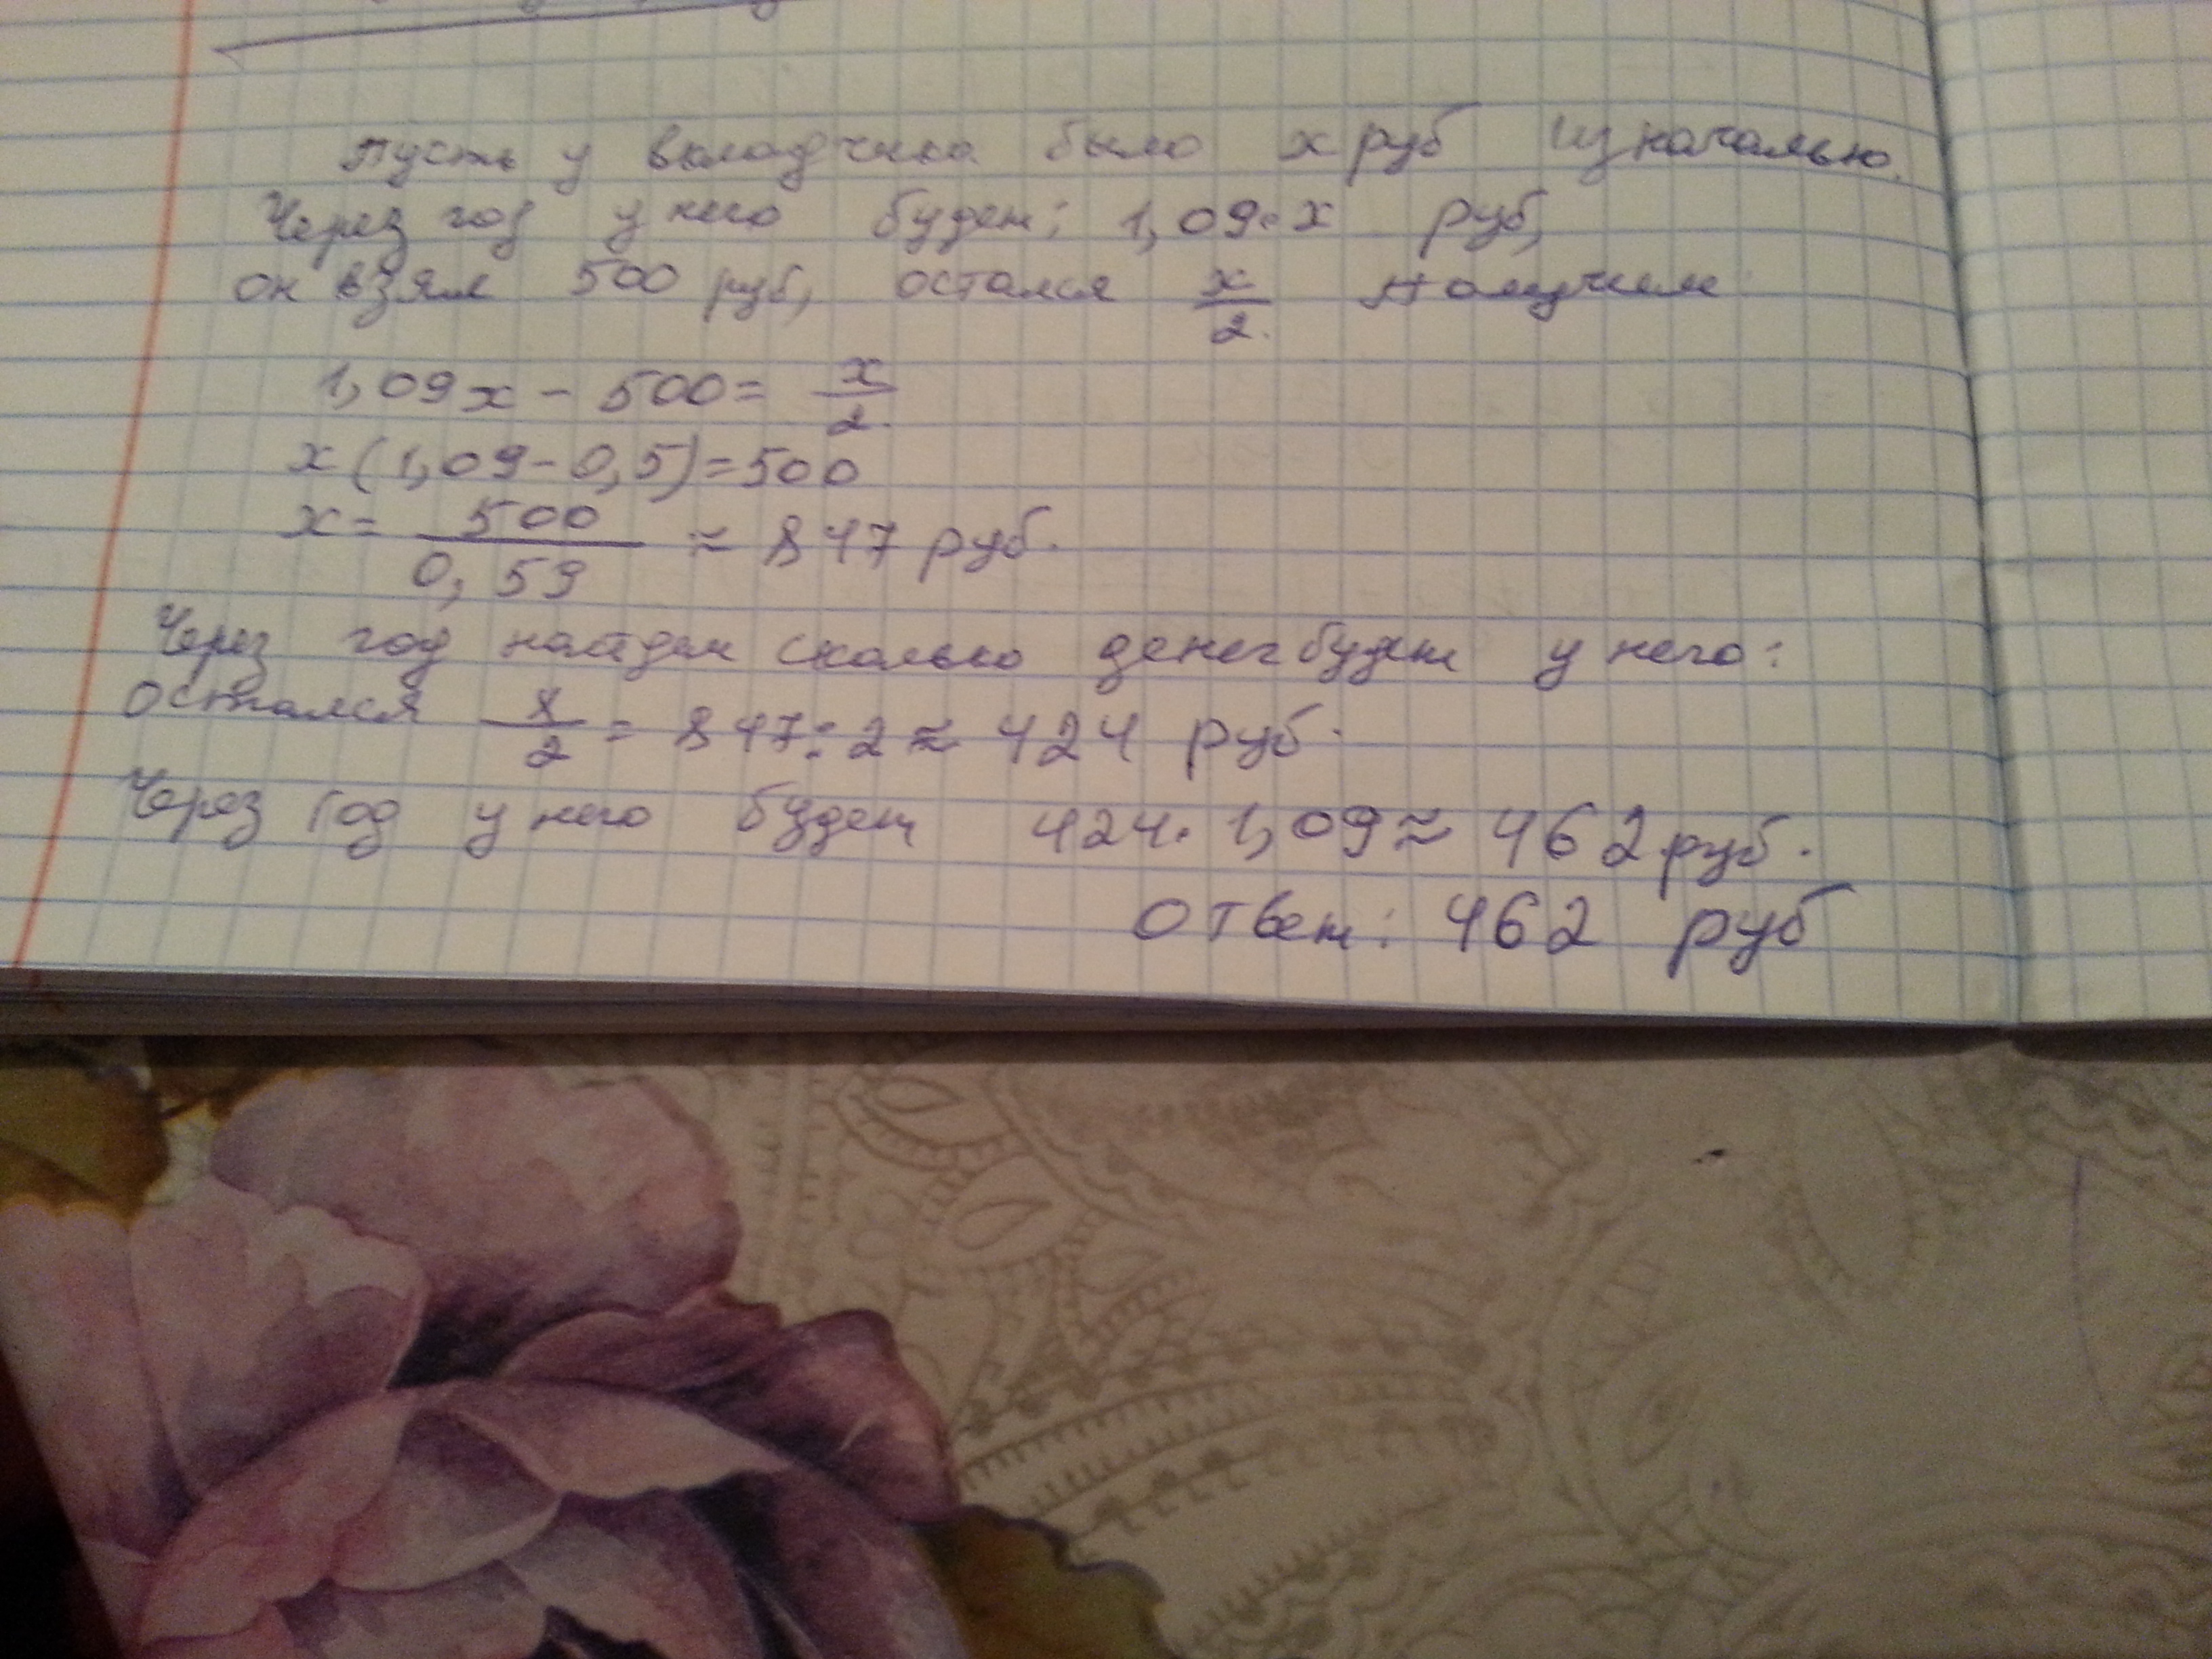 Пусть у вкладчика было x руб изначально.
Через год у него будет: 1,09·x руб,
он взял 500 руб, остался x/2 Получим
1,09x - 500 = x/2
x(1,09-0,5)=500
x = 500/0,59 ≈ 847 руб.
Через год найдем сколько денег будет у него:
остался x/2 = 847:2 ≈ 424 руб.
Через год у него будет 424·1,09 ≈ 462 руб.
Ответ: 462 руб